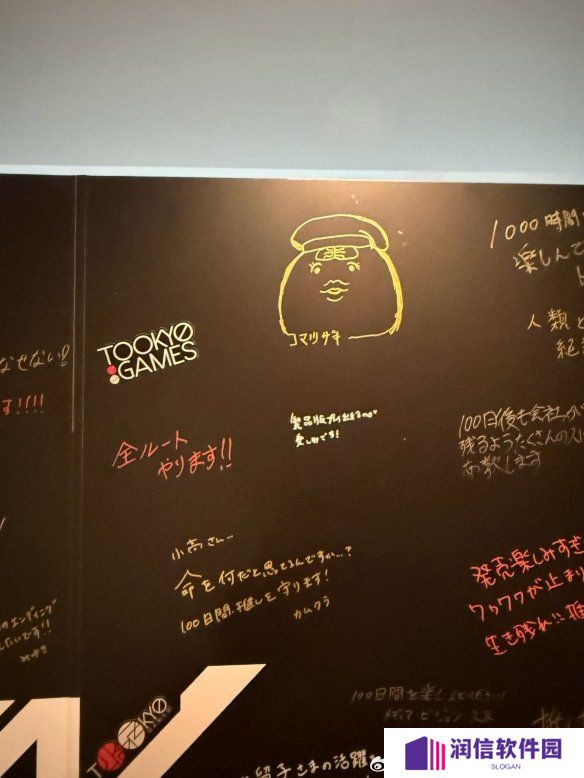 1000時間
楽しんで
コマツザキ
TOOKYO
GAMES
人類と
なせない!
す!!!!
全ルート
やります!!
製品版プレイ
楽しみです!
100日後も会社が
残るようたくさんの人に
布教します
小高さん…
命を何だと思ってるんですか…?
100日間、推しを守ります!
カムクラ
発売楽しみすぎ
ワクワクが止まり
生き残れ!!
のエンディング
たいです!!
100日間を楽しんでください!
メディア・ビジョン
TOOKYO
GAMES
留子さまの活躍
润信软件园
SLOGAN